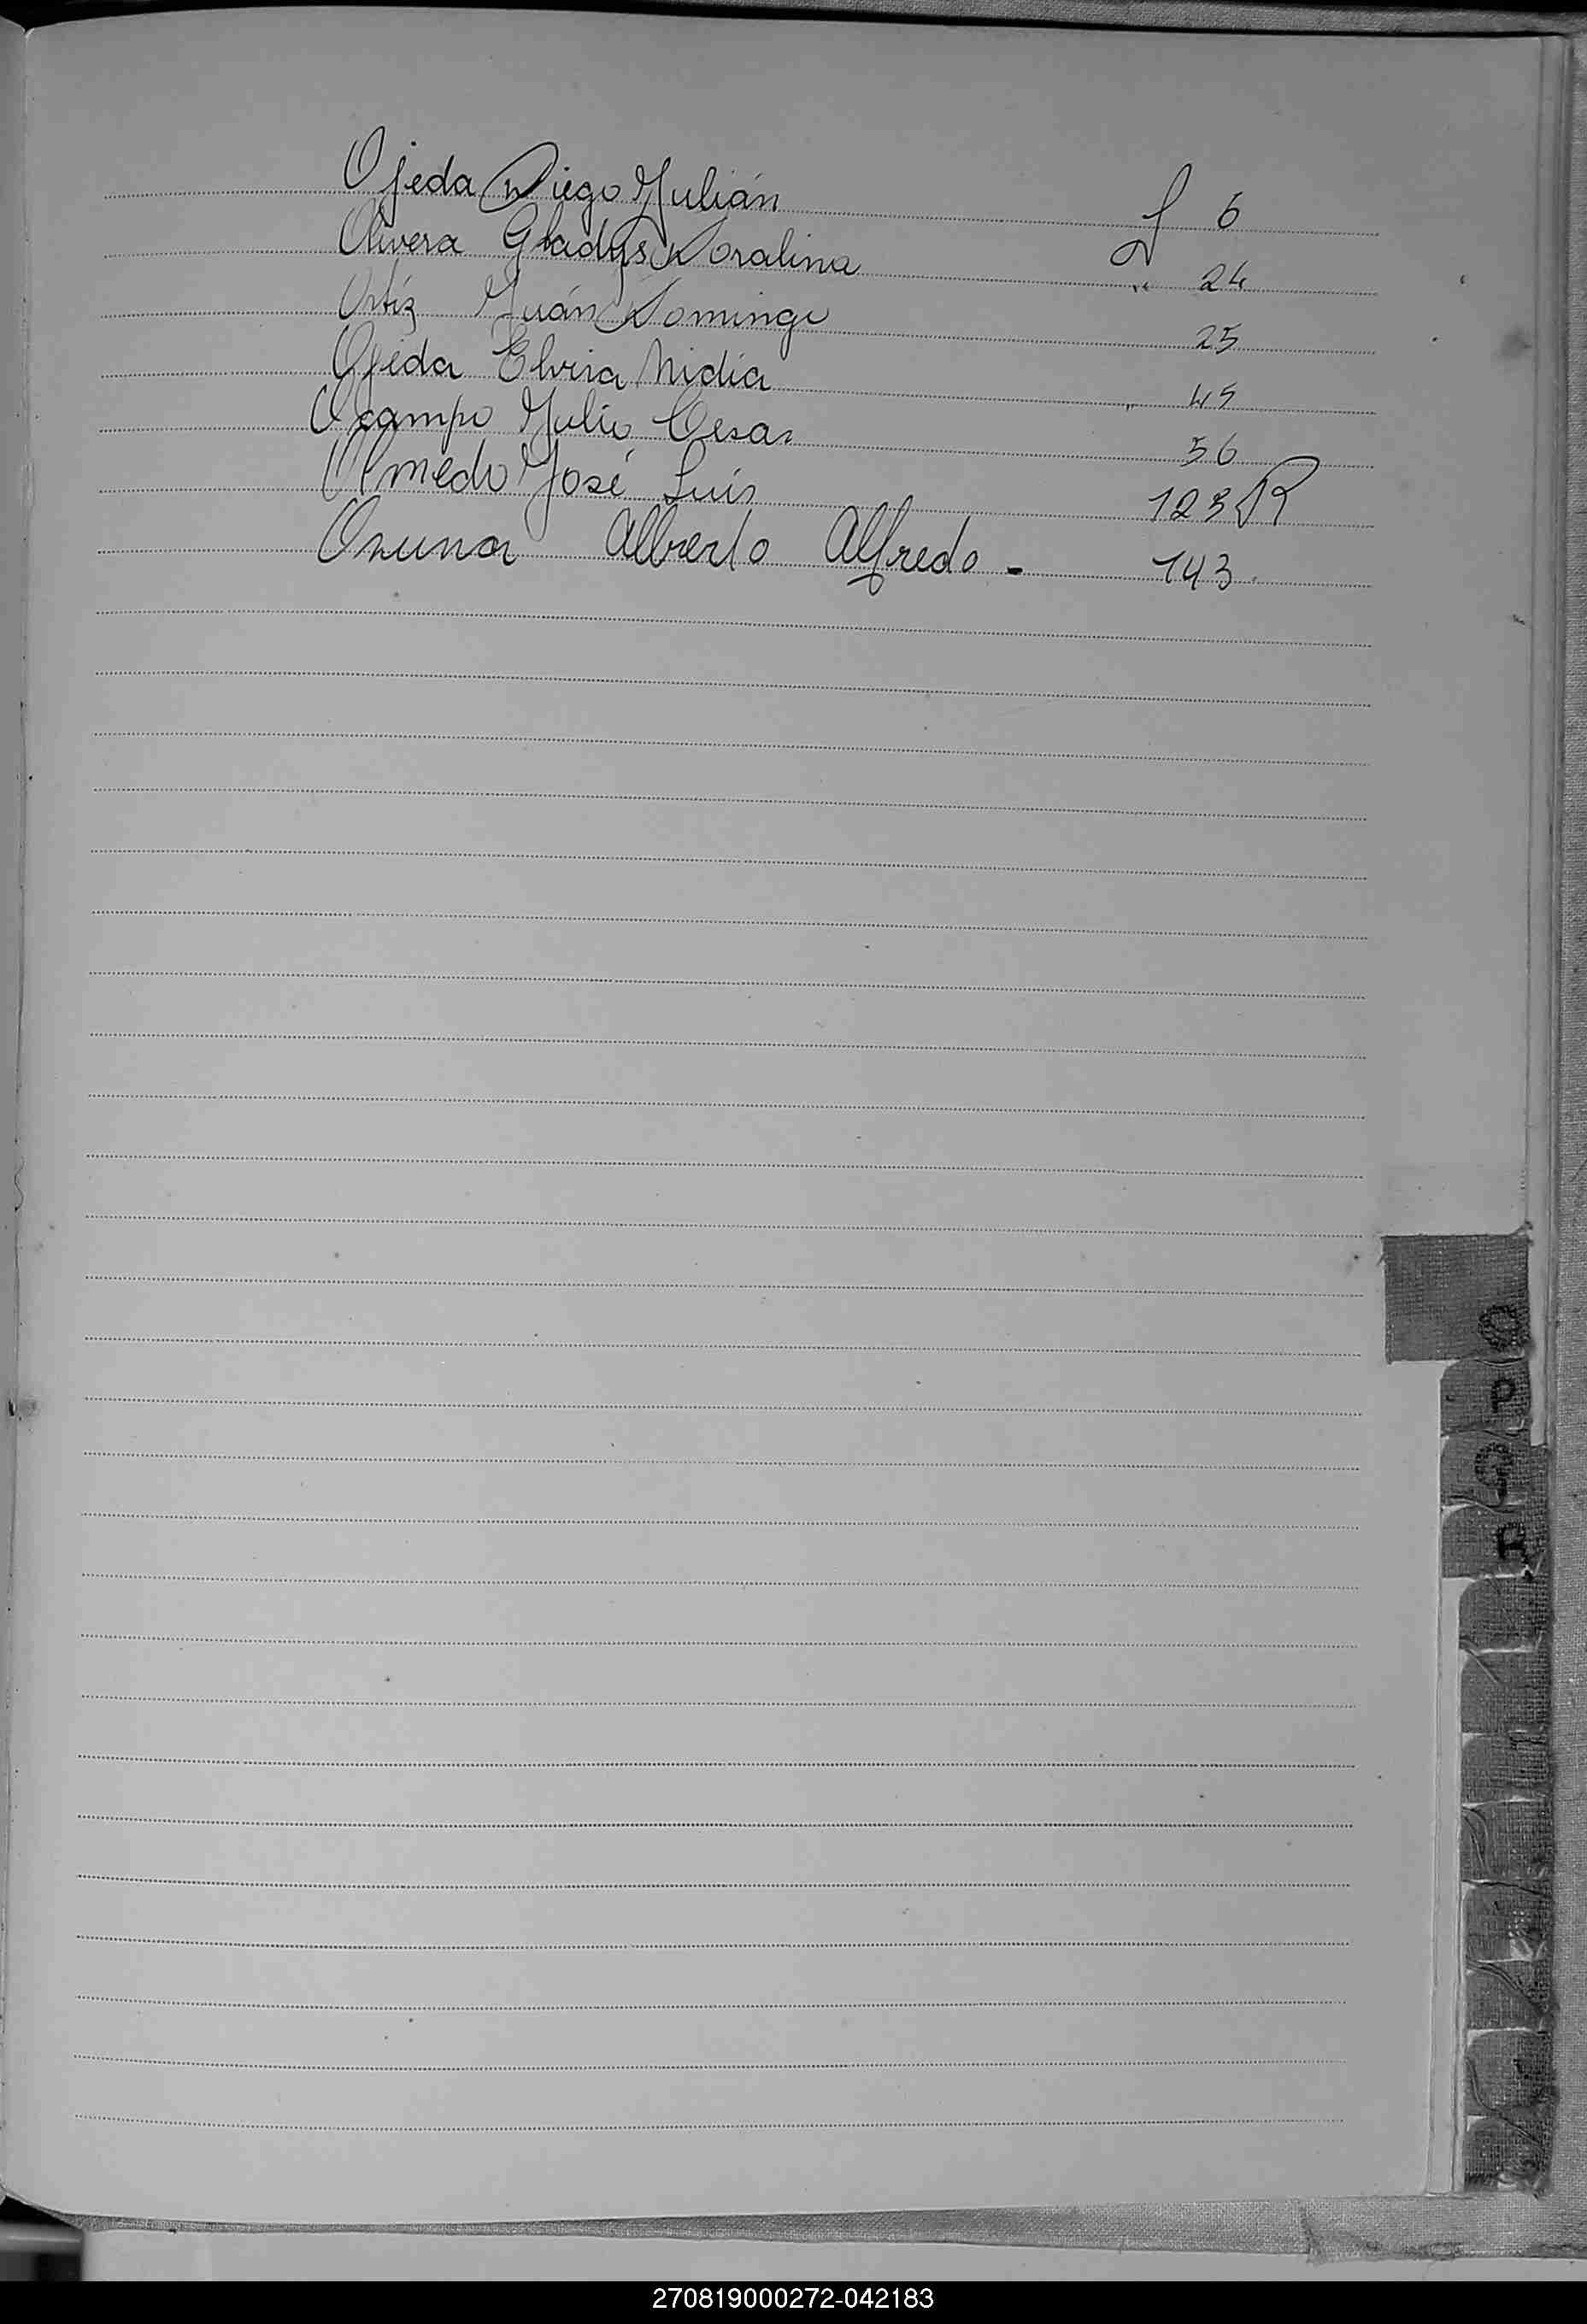 Ojeda Diego Julián f 6
Olivera Gladys Doralina " 24
Ortíz Juán Domingo 25
Ojeda Elvira Nidia " 45
Ocampo Julio Cesar 56
Olmedo José Luis 123 R
Osuna Alberto Alfredo - 143.
O
P
Q
R
270819000272-042183